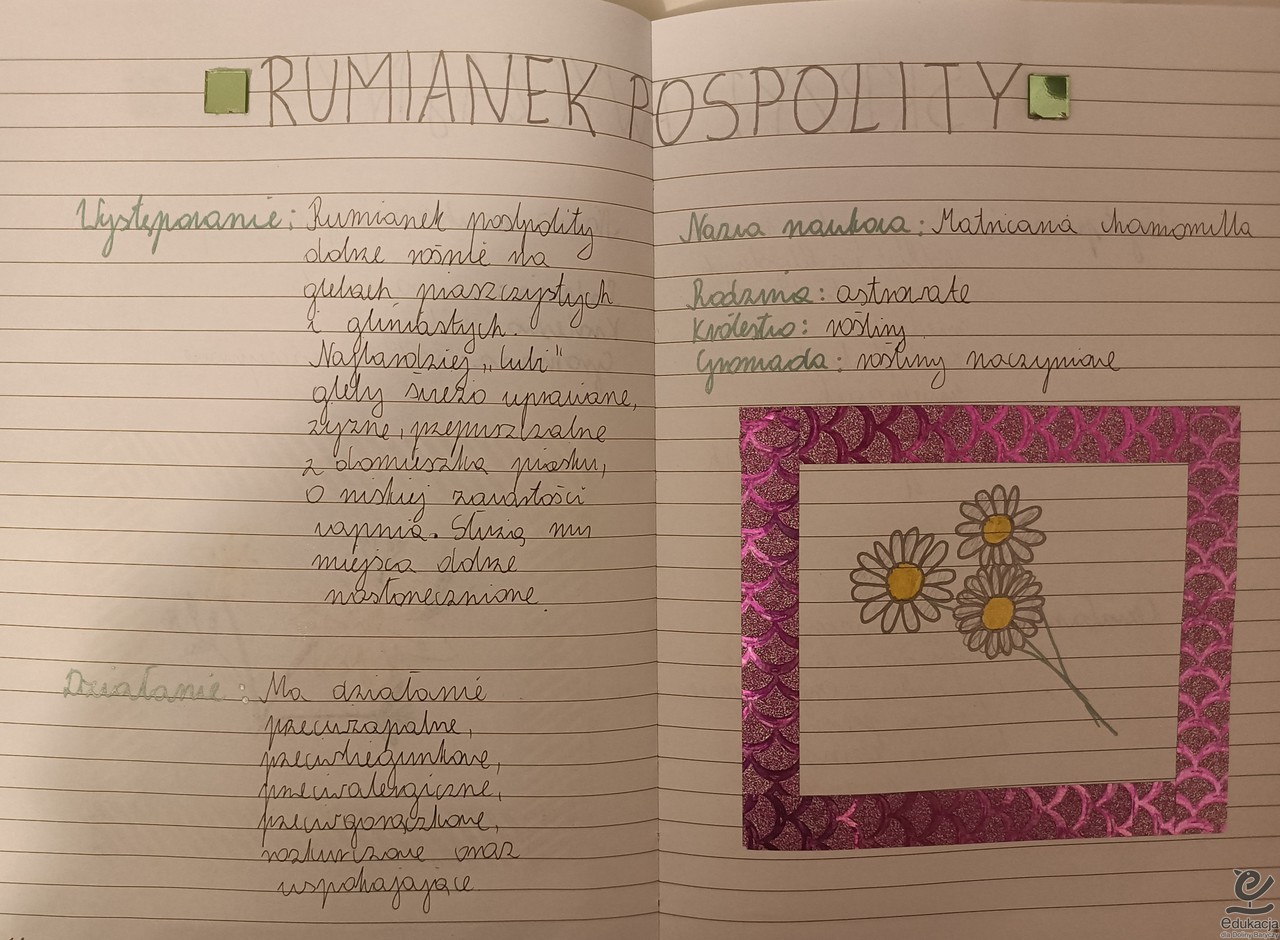 RUMIANEK POSPOLITY
Występowanie: Rumianek pospolity
dobrze rośnie na
glebach piaszczystych
i gliniastych.
Najbardziej „lubi"
gleby świeżo uprawiane,
żyzne, przepuszczalne
z domieszką piasku,
o niskiej zawartości
wapnia. Służą mu
miejsca dobrze
nasłonecznione.
Działanie: Ma działanie
przeciwzapalne,
przeciwbiegunkowe,
przeciwalergiczne,
przeciwgorączkowe,
rozkurczowe oraz
uspokajające.
Nazwa naukowa: Matricaria chamomilla
Rodzina: astrowate
Królestwo: rośliny
Gromada: rośliny naczyniowe
edukacja
dla Doliny Baryczy